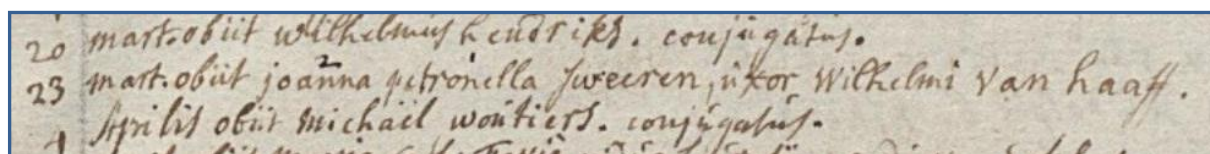 20 mart. obiit wilhelmus hendriks. conjugatus.
23 mart. obiit joanna petronella sweeren, uxor wilhelmi van haaff.
Aprilis obiit michaël woutiers. conjugatus.